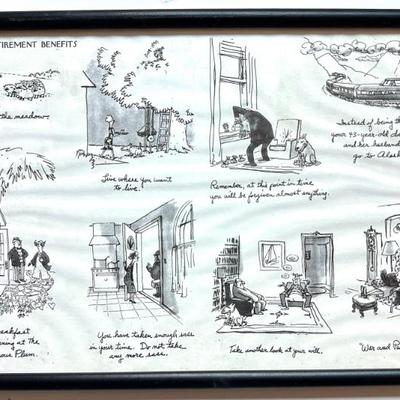 TIREMENT BENEFITS
the meadow.
Live where you want
to live.
Remember, at this point in time
you will be forgiven almost anything.
Instead of being th
your 43-year-old d
and her husband
go to Alask
eakfast
ning at the
Plum.
You have taken enough
in your time. Do not take
any more
Take another look at your will.
"War and P